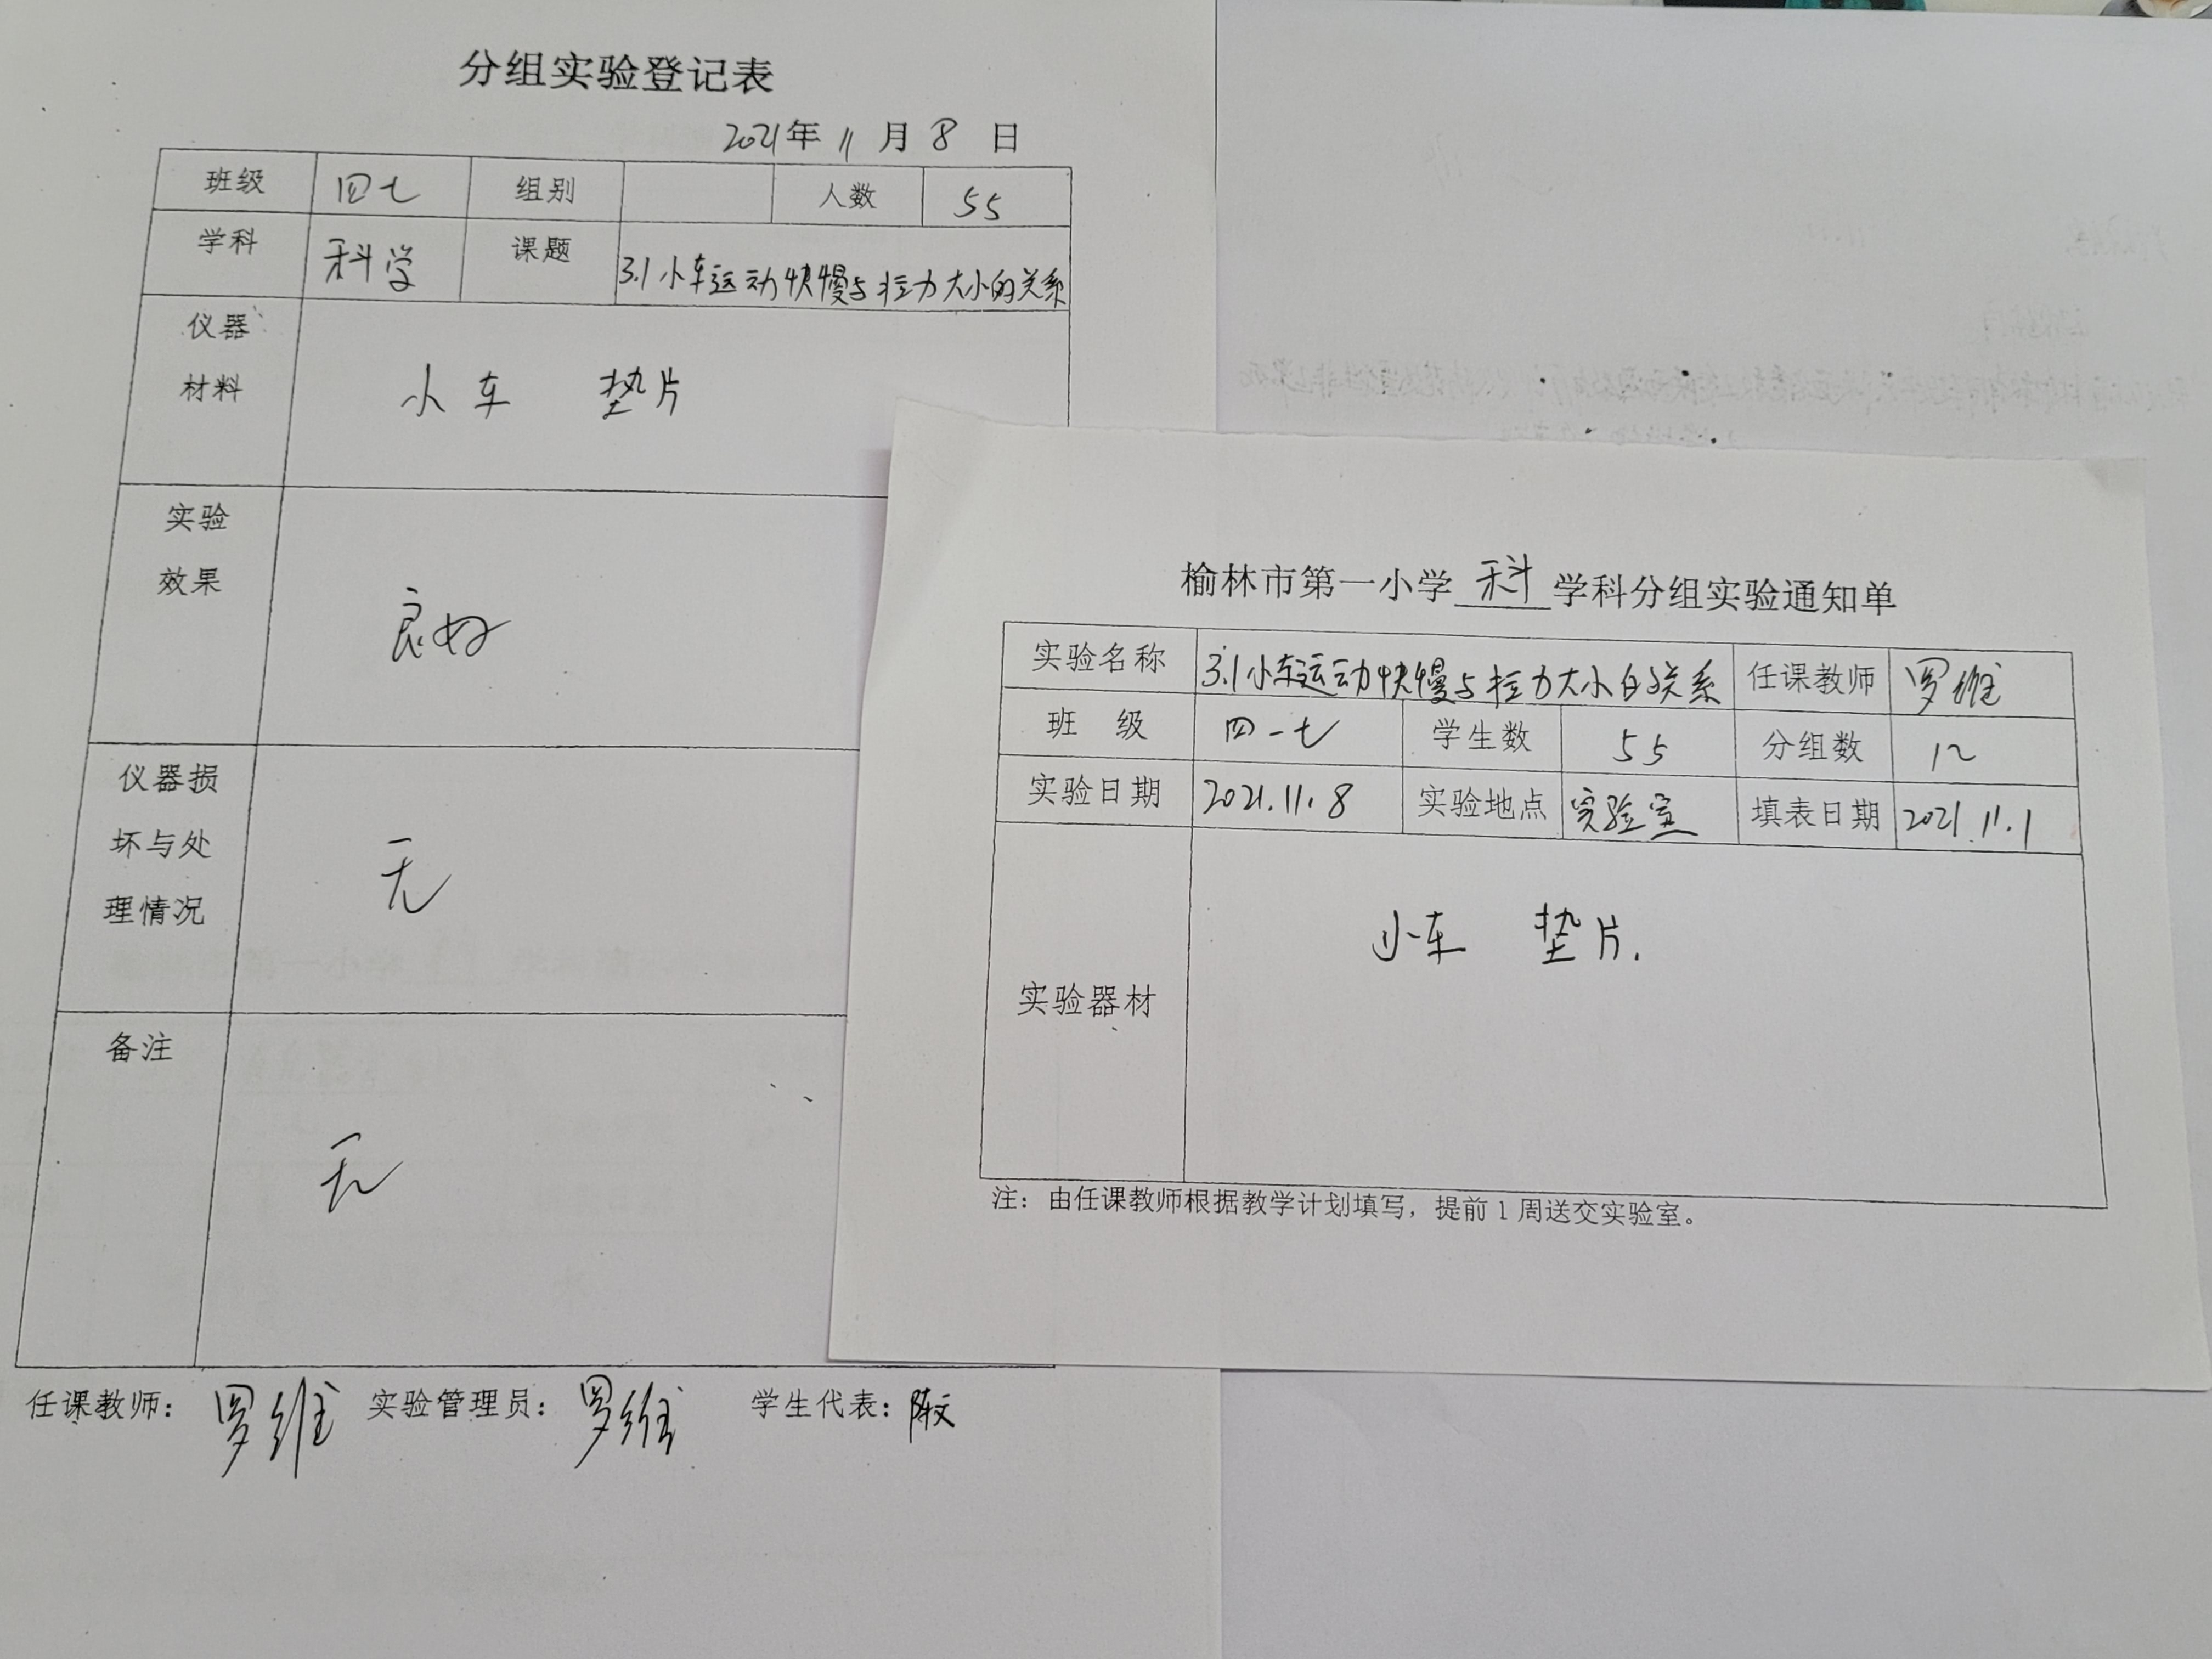 分组实验登记表
2021年 11 月 8 日
班级 四七 组别 人数 55
学科 科学 课题 3.1小车运动快慢与拉力大小的关系
仪器
材料
小车 垫片
实验
效果
良好
仪器损
坏与处
理情况
无
备注
无
任课教师：罗维 实验管理员：罗维 学生代表：陈文
榆林市第一小学 科 学科分组实验通知单
实验名称 3.1小车运动快慢与拉力大小的关系 任课教师 罗维
班 级 四-七 学生数 55 分组数 12
实验日期 2021.11.8 实验地点 实验室 填表日期 2021.11.1
实验器材 小车 垫片.
注：由任课教师根据教学计划填写，提前1周送交实验室。